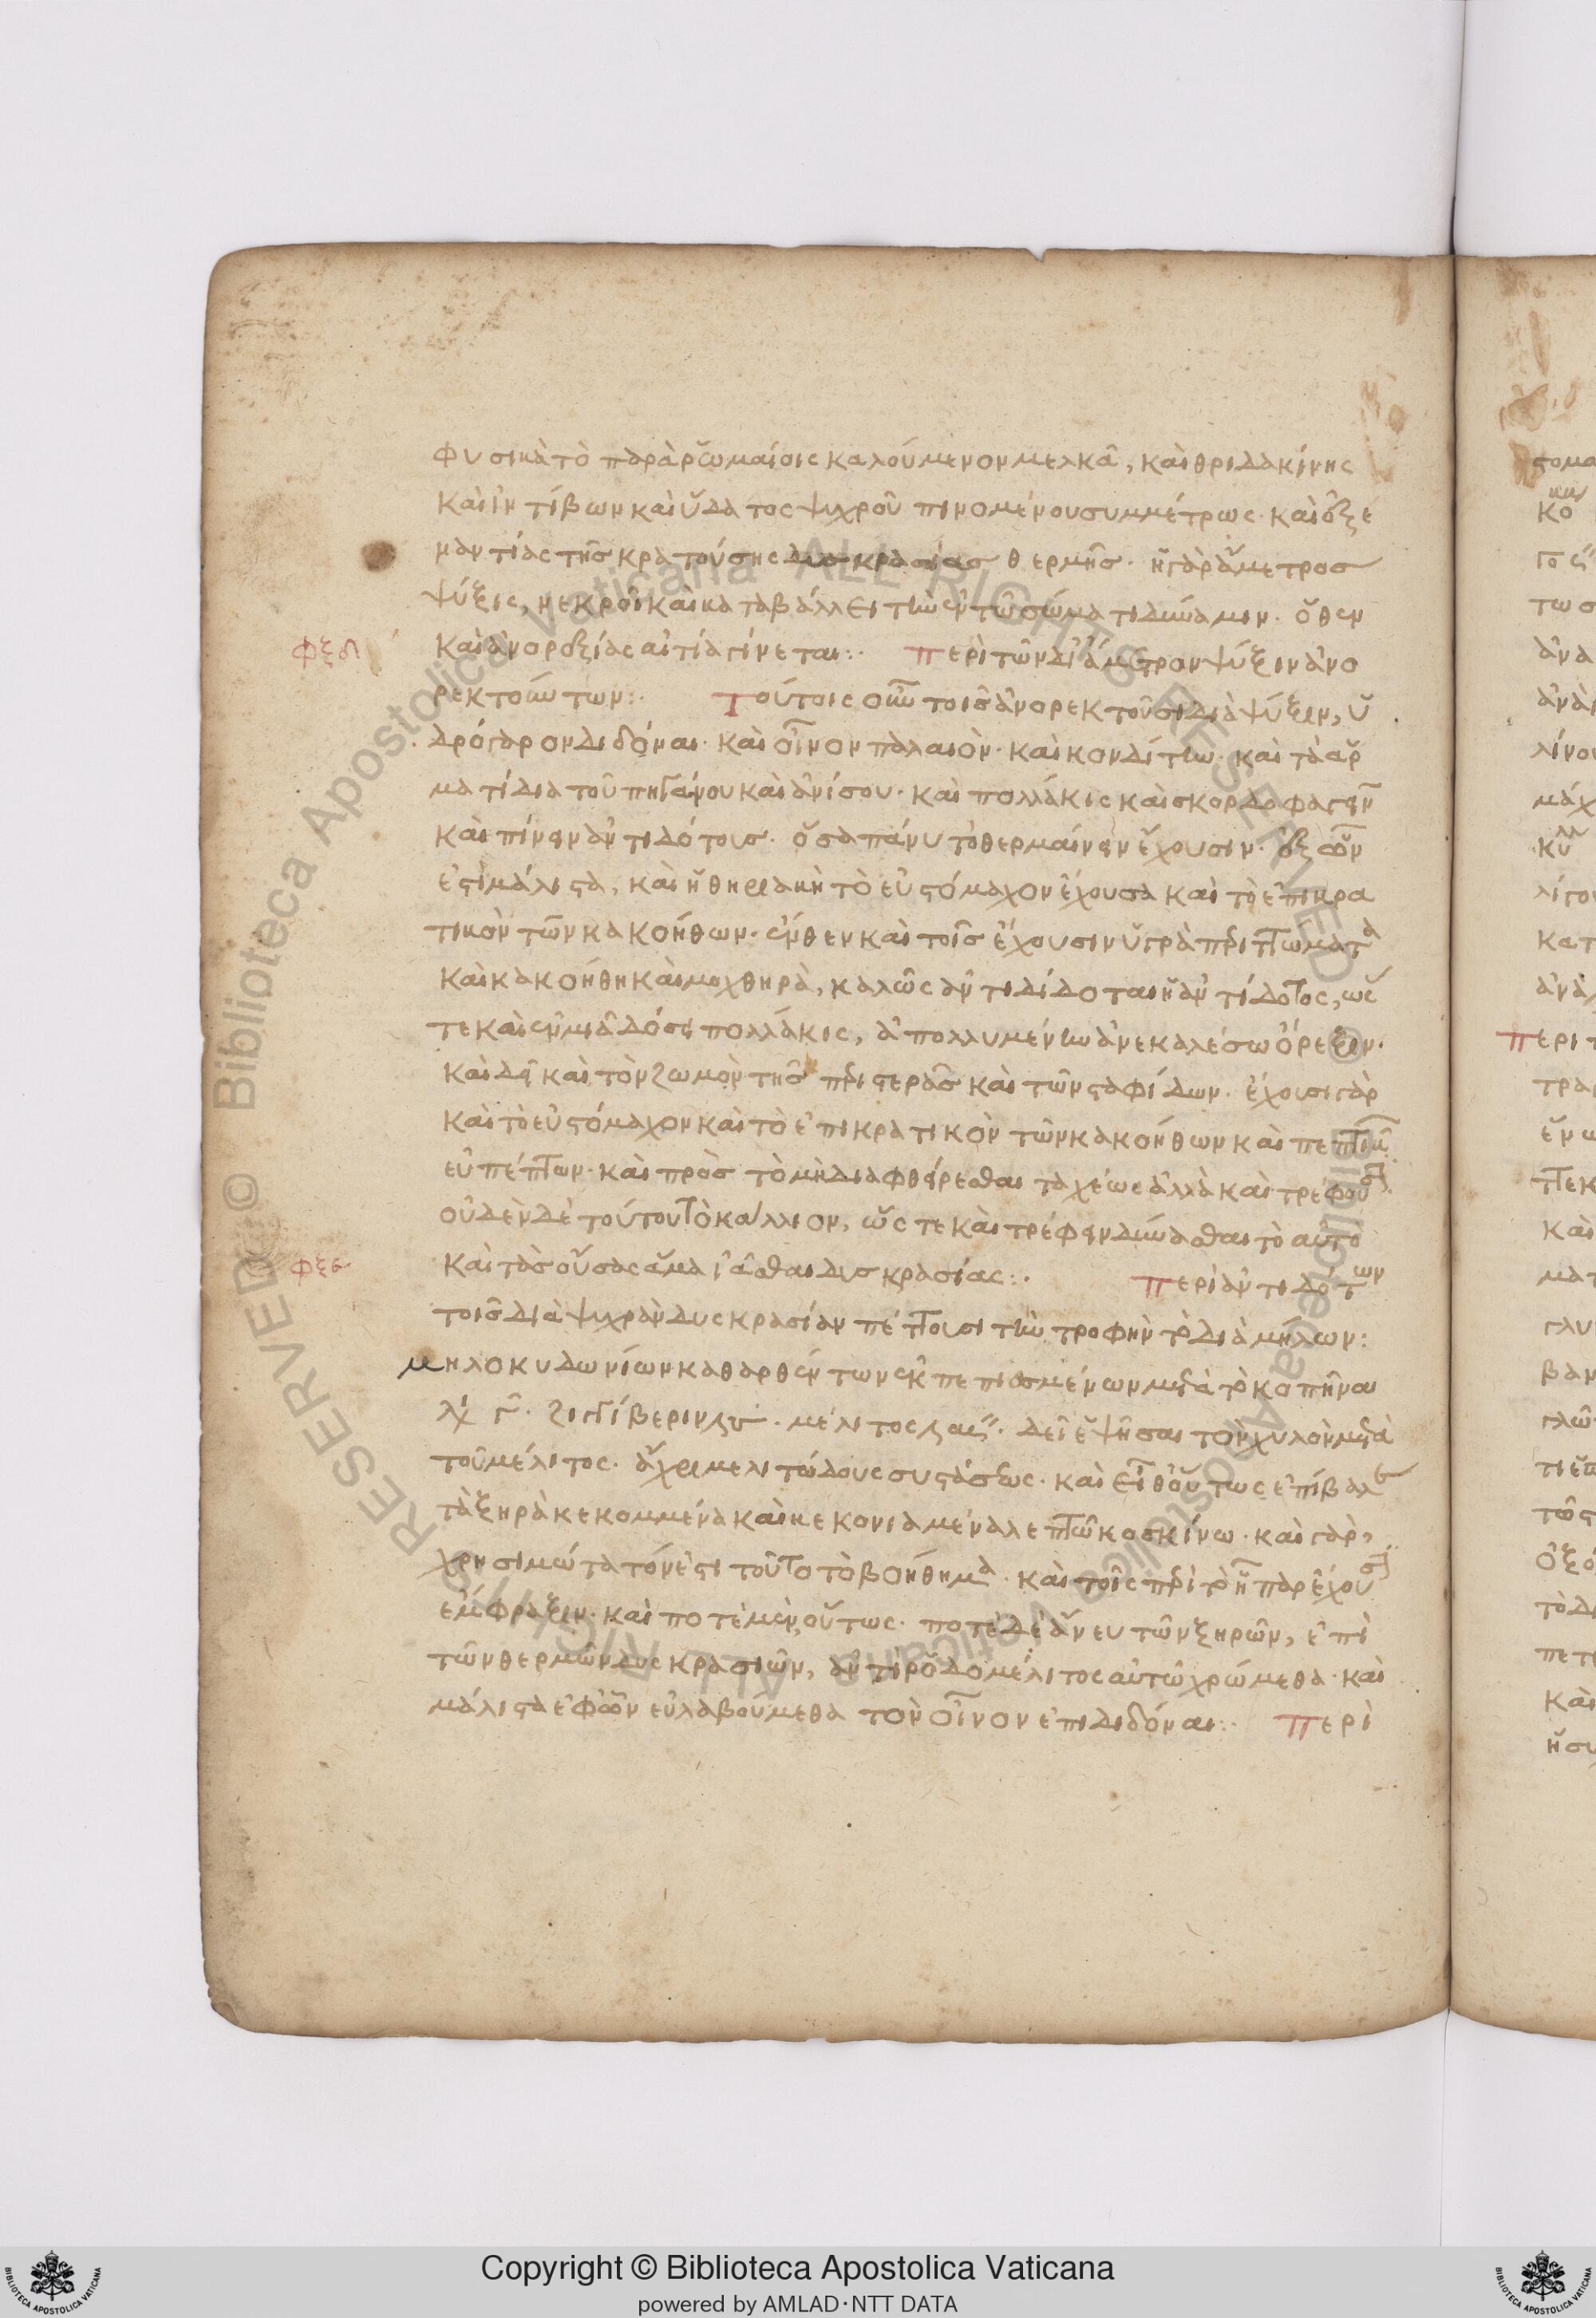 φυσικὰ τὸ παρὰ ῥωμαίοις καλούμενον μελκᾶ, καὶ θριδακίνης
καὶ ἰντίβων καὶ ὕδατος ψυχροῦ πινομένου συμμέτρως· καὶ ὀξε
μαντίας τῆς κρατούσης δυσκρασίας θερμῆς· ἡ γὰρ ἄμετρος
ψύξις, νεκροῖ καὶ καταβάλλει τὴν ἐν τῶ σώματι δύναμιν· ὅθεν
φξδ
καὶ ἀνορεξίας αἰτία γίνεται:· περὶ τῶν δι' ἄμετρον ψύξιν ἀνο
ρεκτούντων:· Τούτοις οὖν τοῖς ἀνορεκτοῦσι διὰ ψύξιν, ὑ
δρόγαρον διδόναι· καὶ οἶνον παλαιὸν· καὶ κονδίτην· καὶ τὰ ἀρ
ματίδια τοῦ πηγάνου καὶ ἀνίσου· καὶ πολλάκις καὶ σκορδοφαγεῖν
καὶ πίνειν ἀντιδότους· ὅσα πάνυ τὸ θερμαίνειν ἔχουσιν· ἐξ ὧν
ἐστὶ μάλιστα, καὶ ἡ θηριακὴ τὸ εὐστόμαχον ἔχουσα καὶ τὸ ἐπικρα
τικὸν τῶν κακοήθων· ἔνθεν καὶ τοῖς ἔχουσιν ὑγρὰ περιττώματα
καὶ κακοήθη καὶ μοχθηρὰ, καλῶς ἀντιδίδοται ἡ ἀντίδοτος, ὥς
τε καὶ ἐν μιᾶ δόσει πολλάκις, ἀπολλυμένην ἀνεκαλέσω ὄρεξιν·
καὶ δεῖ καὶ τὸν ζωμὸν τῆς περιστερᾶς καὶ τῶν σταφίδων· ἔχουσι γὰρ
καὶ τὸ εὐστόμαχον καὶ τὸ ἐπικρατικὸν τῶν κακοήθων καὶ πεπτικὸν
εὐπέπτων· καὶ πρὸς τὸ μὴ διαφθείρεσθαι ταχέως ἀλλὰ καὶ τρέφουσι
οὐδὲν δὲ τούτου τὸ κάλλιον, ὥστε καὶ τρέφειν δύνασθαι τὸ αὐτὸ
φξε
καὶ τὰς οὔσας ἅμα ἰᾶσθαι δυσκρασίας:· περὶ ἀντιδότων
τοῖς διὰ ψυχρὰν δυσκρασίαν πέττουσι τὴν τροφὴν τὸ διὰ μήλων:
μηλοκυδωνίων καθαρθέντων ἐκπεπιασμένων μετὰ τὸ κοπῆναι
τοῦ μέλιτος· ἄχρι μελιτώδους συστάσεως· καὶ εἶθ' οὕτως ἐπίβαλε
τὰ ξηρὰ κεκομμένα καὶ κεκονιαμένα λεπτῶ κοσκίνω· καὶ γὰρ,
χρησιμώτατόν ἐστι τοῦτο τὸ βοήθημα· καὶ τοῖς περὶ τὸ ἧπαρ ἔχουσι
ἔμφραξιν· καὶ ποτὲ μὲν οὕτως· ποτὲ δὲ ἄνευ τῶν ξηρῶν, ἐπὶ
τῶν θερμῶν δυσκρασιῶν, ἀντὶ ῥοδομέλιτος αὐτῶ χρώμεθα· καὶ
μάλιστα ἐφ' ὧν εὐλαβούμεθα τὸν οἶνον ἐπιδιδόναι:· περὶ
Copyright © Biblioteca Apostolica Vaticana
powered by AMLAD·NTT DATA